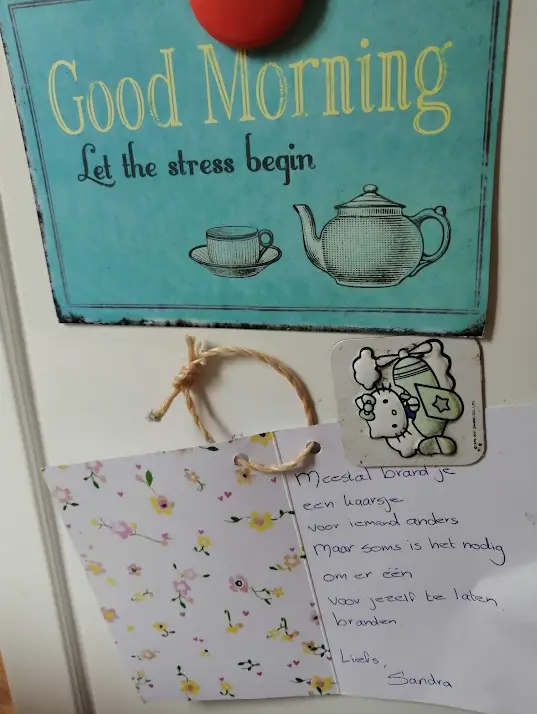 Good Morning
Let the stress begin
Meestal brand je
een kaarsje
voor iemand anders
Maar soms is het nodig
om er één
voor jezelf te laten
branden.
Liefs,
Sandra